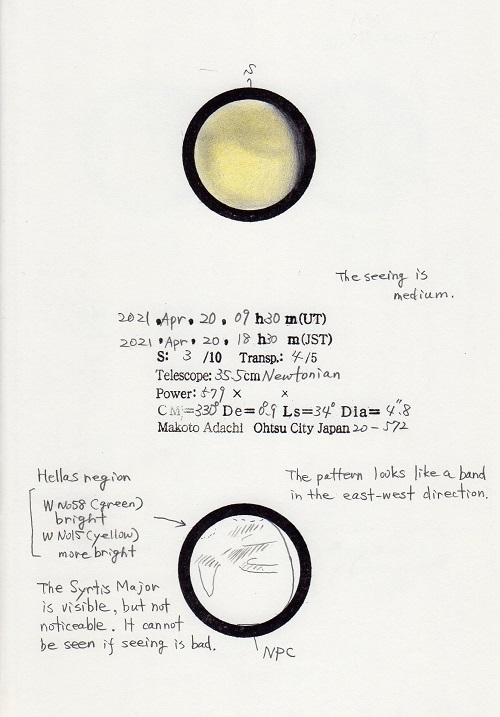 S
The seeing is
medium.
2021, Apr, 20, 09 h30 m(UT)
2021, Apr, 20, 18 h30 m(JST)
S: 3 /10 Transp.: 4/5
Telescope: 35.5cm Newtonian
Power: 579 × ×
CM=330° De=0.9 Ls=34° Dia= 4".8
Makoto Adachi Ohtsu City Japan 20-572
Hellas region
W No58 (green)
bright
W No15 (yellow)
more bright
The pattern looks like a band
in the east-west direction.
The Syrtis Major
is visible, but not
noticeable. It cannot
be seen if seeing is bad.
NPC